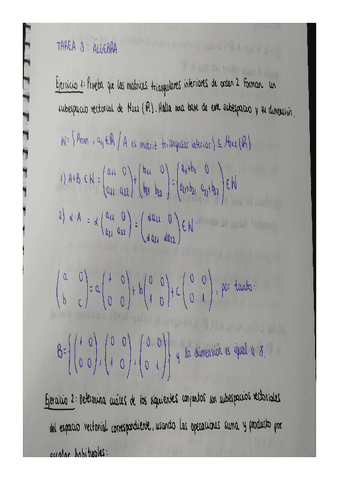 TAREA 3: ÁLGEBRA
Ejercicio 1: Prueba que las matrices triangulares inferiores de orden 2 forman un
subespacio vectorial de M2x2 (ℝ). Halla una base de este subespacio y su dimensión.
W = { Amxn ; aij ∈ ℝ / A es matriz triangular inferior } ⊆ M2x2 (ℝ)
1) A+B ∈ W = (a11 0; a21 a22) + (b11 0; b21 b22) = (a11+b11 0; a21+b21 a22+b22) ∈ W
2) α A = α (a11 0; a21 a22) = (αa11 0; αa21 αa22) ∈ W
(a 0; b c) = a (1 0; 0 0) + b (0 0; 1 0) + c (0 0; 0 1), por tanto:
B = { (1 0; 0 0), (0 0; 1 0), (0 0; 0 1) } y la dimensión es igual a 3.
Ejercicio 2: Determina cuáles de los siguientes conjuntos son subespacios vectoriales
del espacio vectorial correspondiente, usando las operaciones suma y producto por
escalar habituales: